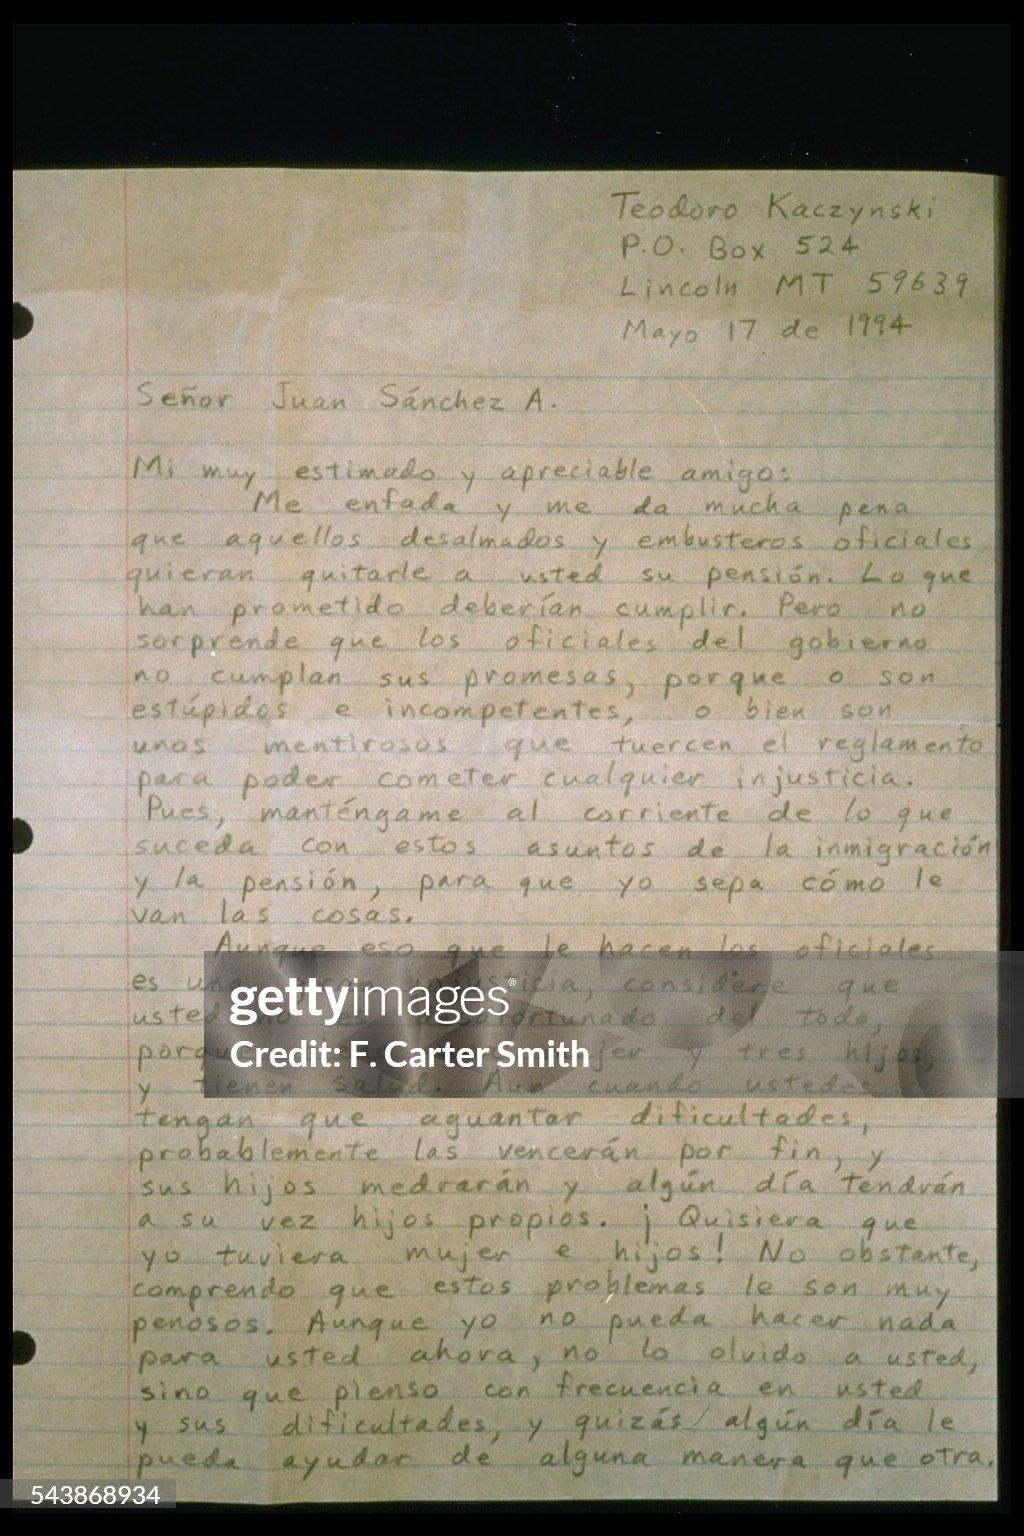 Teodoro Kaczynski
P.O. Box 524
Lincoln MT 59639
Mayo 17 de 1994
Señor Juan Sánchez A.
Mi muy estimado y apreciable amigo:
Me enfada y me da mucha pena
que aquellos desalmados y embusteros oficiales
quieran quitarle a usted su pensión. Lo que
han prometido deberían cumplir. Pero no
sorprende que los oficiales del gobierno
no cumplan sus promesas, porque o son
estúpidos e incompetentes, o bien son
unos mentirosos que tuercen el reglamento
para poder cometer cualquier injusticia.
Pues, manténgame al corriente de lo que
suceda con estos asuntos de la inmigración
y la pensión, para que yo sepa cómo le
van las cosas.
Aunque eso que le hacen los oficiales
es una injusticia, considere que
usted no es desafortunado del todo,
y tres hijos,
y tienen salud. Aun cuando ustedes
tengan que aguantar dificultades,
probablemente las vencerán por fin, y
sus hijos medrarán y algún día tendrán
a su vez hijos propios. ¡Quisiera que
yo tuviera mujer e hijos! No obstante,
comprendo que estos problemas le son muy
penosos. Aunque yo no pueda hacer nada
para usted ahora, no lo olvido a usted,
sino que pienso con frecuencia en usted
y sus dificultades, y quizás algún día le
pueda ayudar de alguna manera que otra.
gettyimages®
Credit: F. Carter Smith
543868934